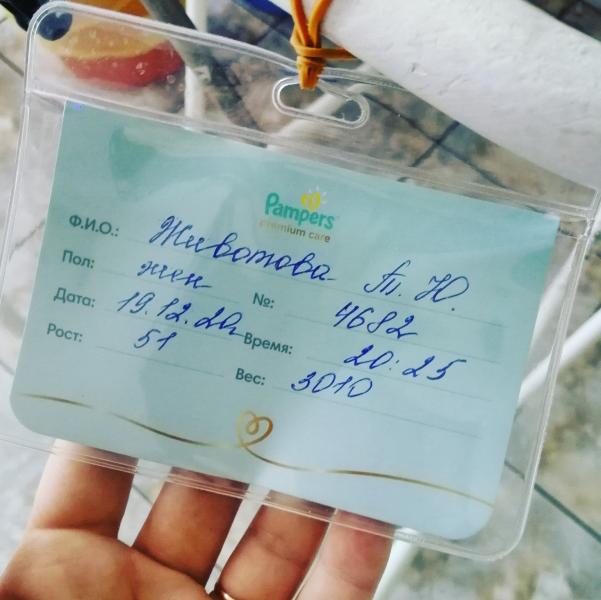 Pampers
premium care
Ф.И.О.: Животова Т. Ю.
Пол: жен №: 4682
Дата: 19.12.20г Время: 20:25
Рост: 51 Вес: 3010